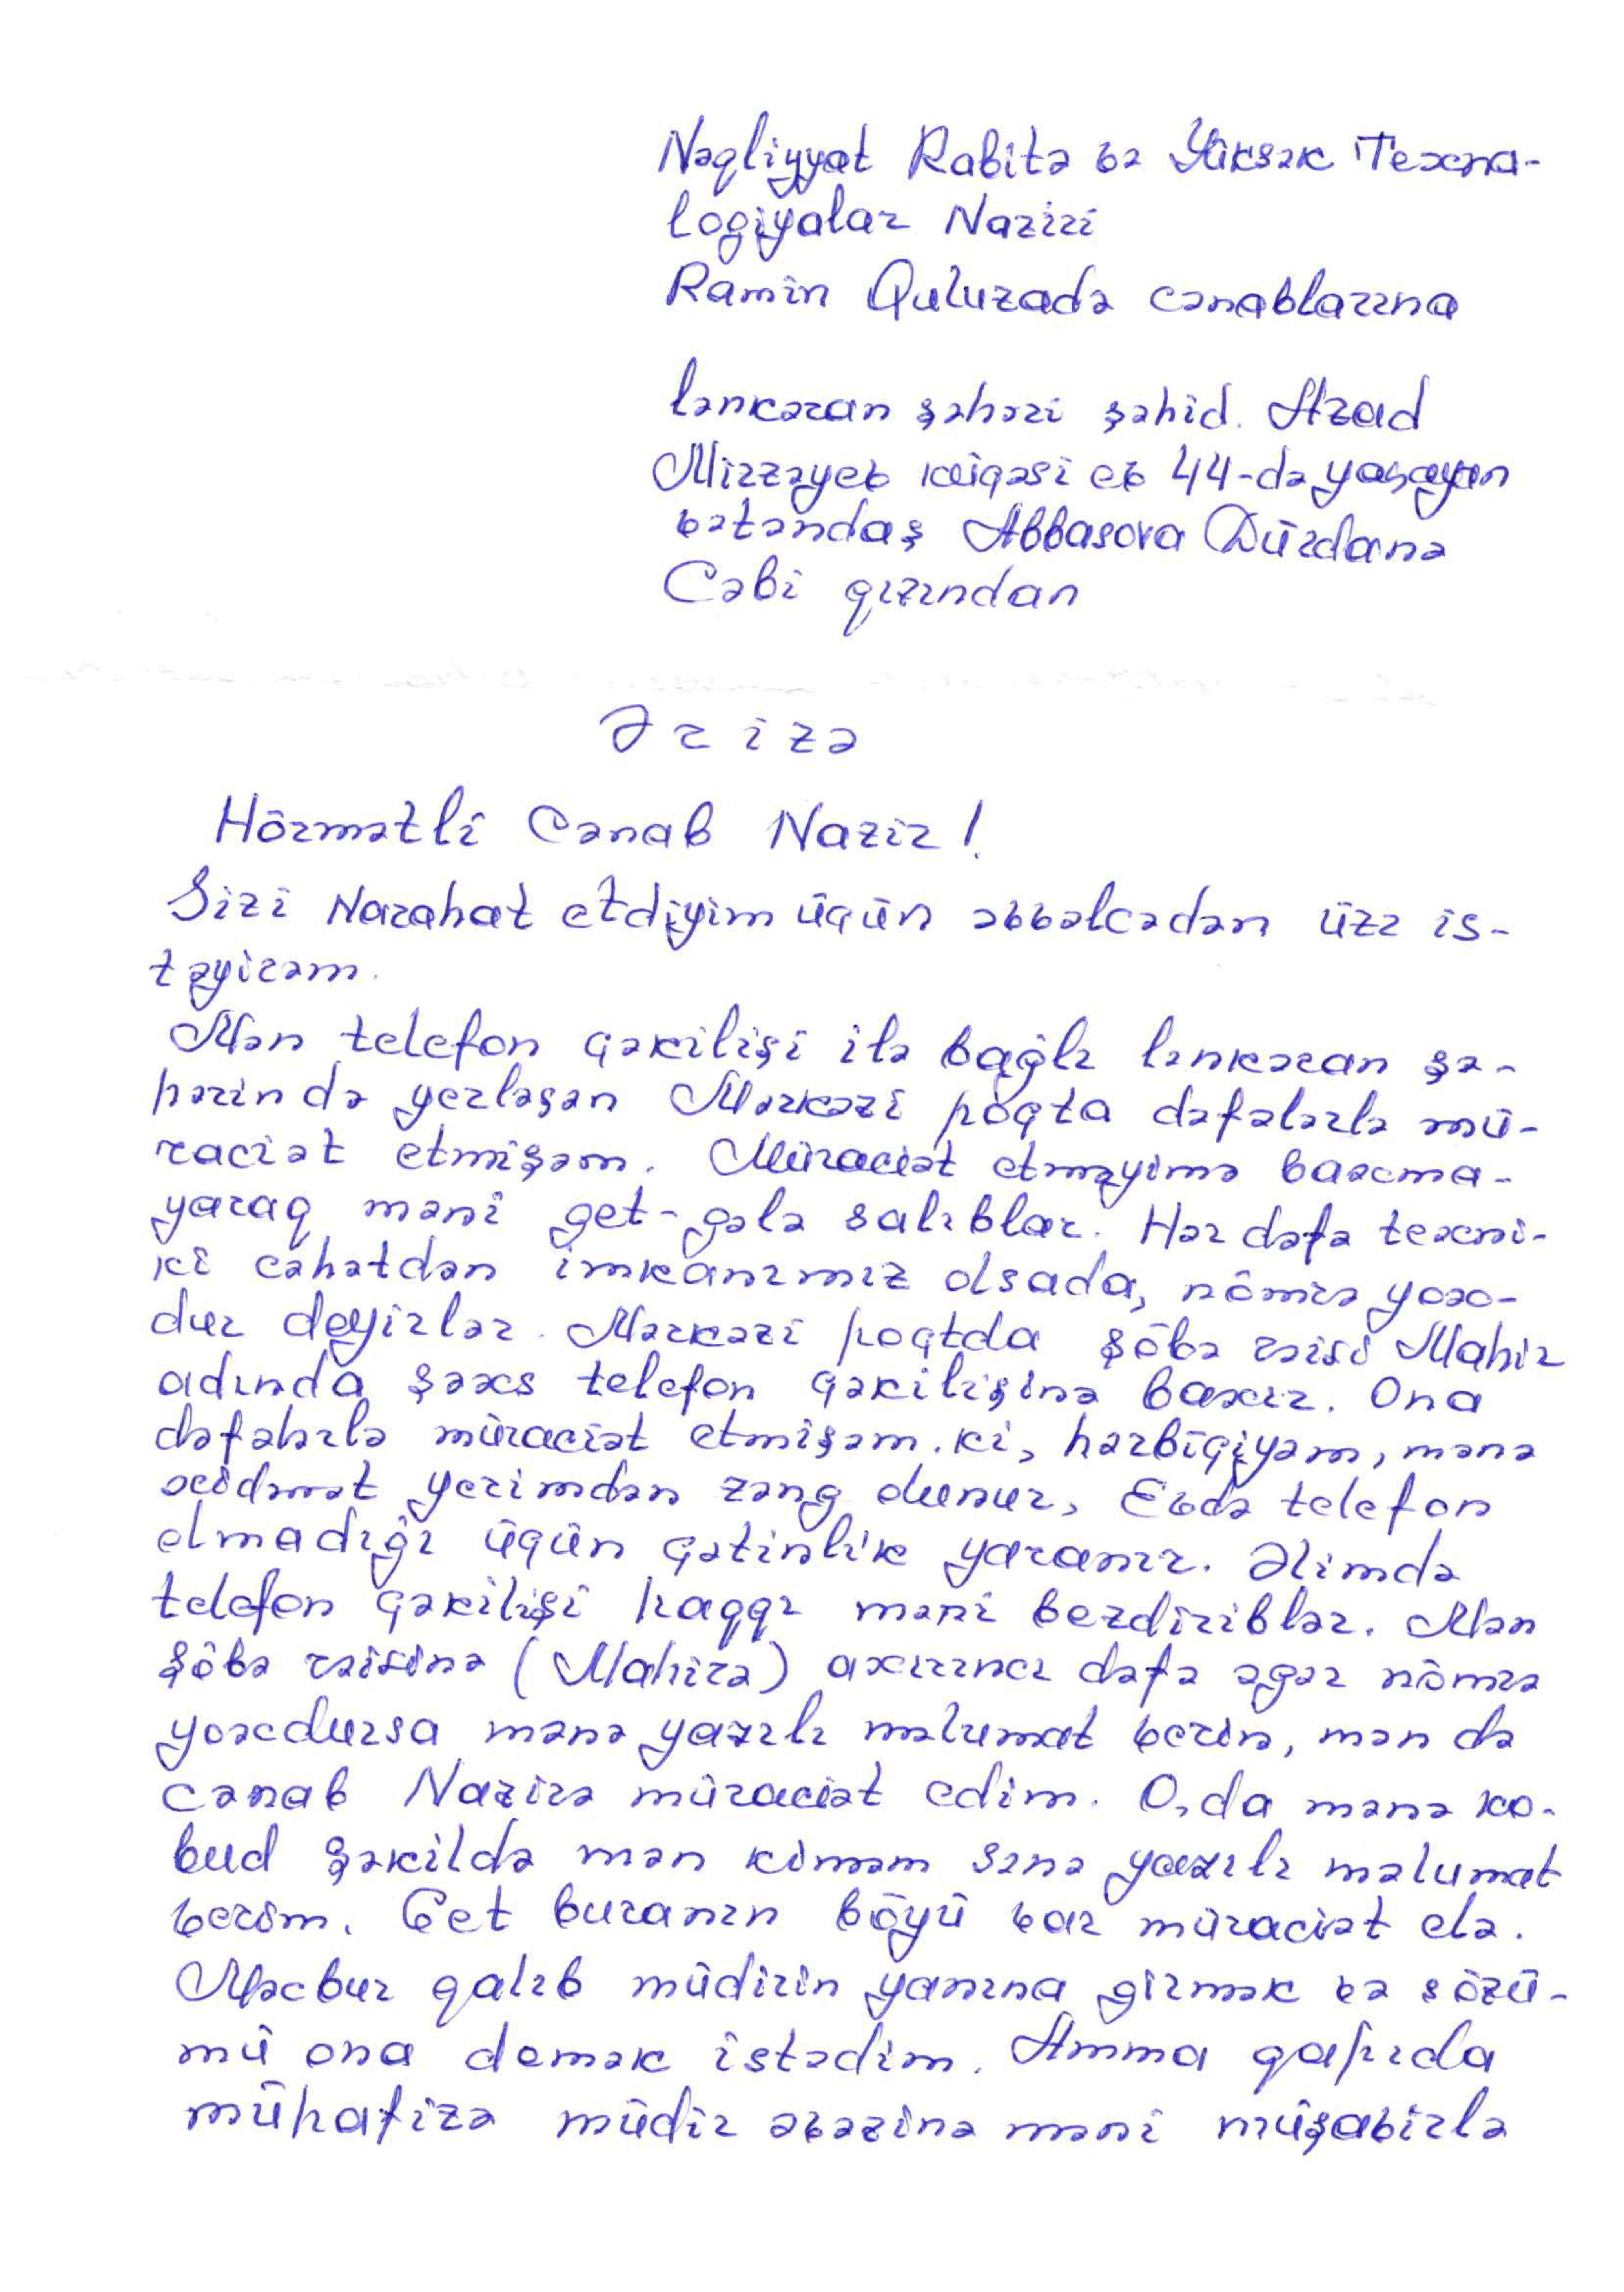 Nəqliyyat Rabitə və Yüksək Texna-
logiyalar Naziri
Ramin Quluzadə cənablarına
Lənkəran şəhəri şəhid. Azad
Mirzəyev küçəsi ev 44-də yaşayan
vətəndaş Abbasova Dürdanə
Cəbi qızından
Ərizə
Hörmətli Cənab Nazir!
Sizi Narahat etdiyim üçün əvvəlcədən üzr is-
təyirəm.
Mən telefon çəkilişi ilə bağlı Lənkəran şə-
hərində yerləşən Mərkəzi poçta dəfələrlə mü-
raciət etmişəm. Müraciət etməyimə baxma-
yaraq məni get-gələ salıblar. Hər dəfə texni-
ki cəhətdən imkanımız olsada, nömrə yox-
dur deyirlər. Mərkəzi poçtda şöbə rəisi Mahir
adında şəxs telefon çəkilişinə baxır. Ona
dəfələrlə müraciət etmişəm.ki, hərbiçiyəm, mənə
xidmət yerimdən zəng olunur, Evdə telefon
olmadığı üçün çətinlik yaranır. Əlimdə
telefon çəkilişi haqqı məni bezdiriblər. Mən
şöbə rəisinə (Mahirə) axırıncı dəfə əgər nömrə
yoxdursa mənə yazılı məlumat verin, mən də
cənab Nazirə müraciət edim. O,da mənə ko-
bud şəkildə mən kiməm sənə yazılı məlumat
verim. Get buranın böyü var müraciət elə.
Məcbur qalıb müdirin yanına girmək və sözü-
mü ona demək istədim. Amma qapıda
mühafizə müdir əvəzinə məni müşavirlə